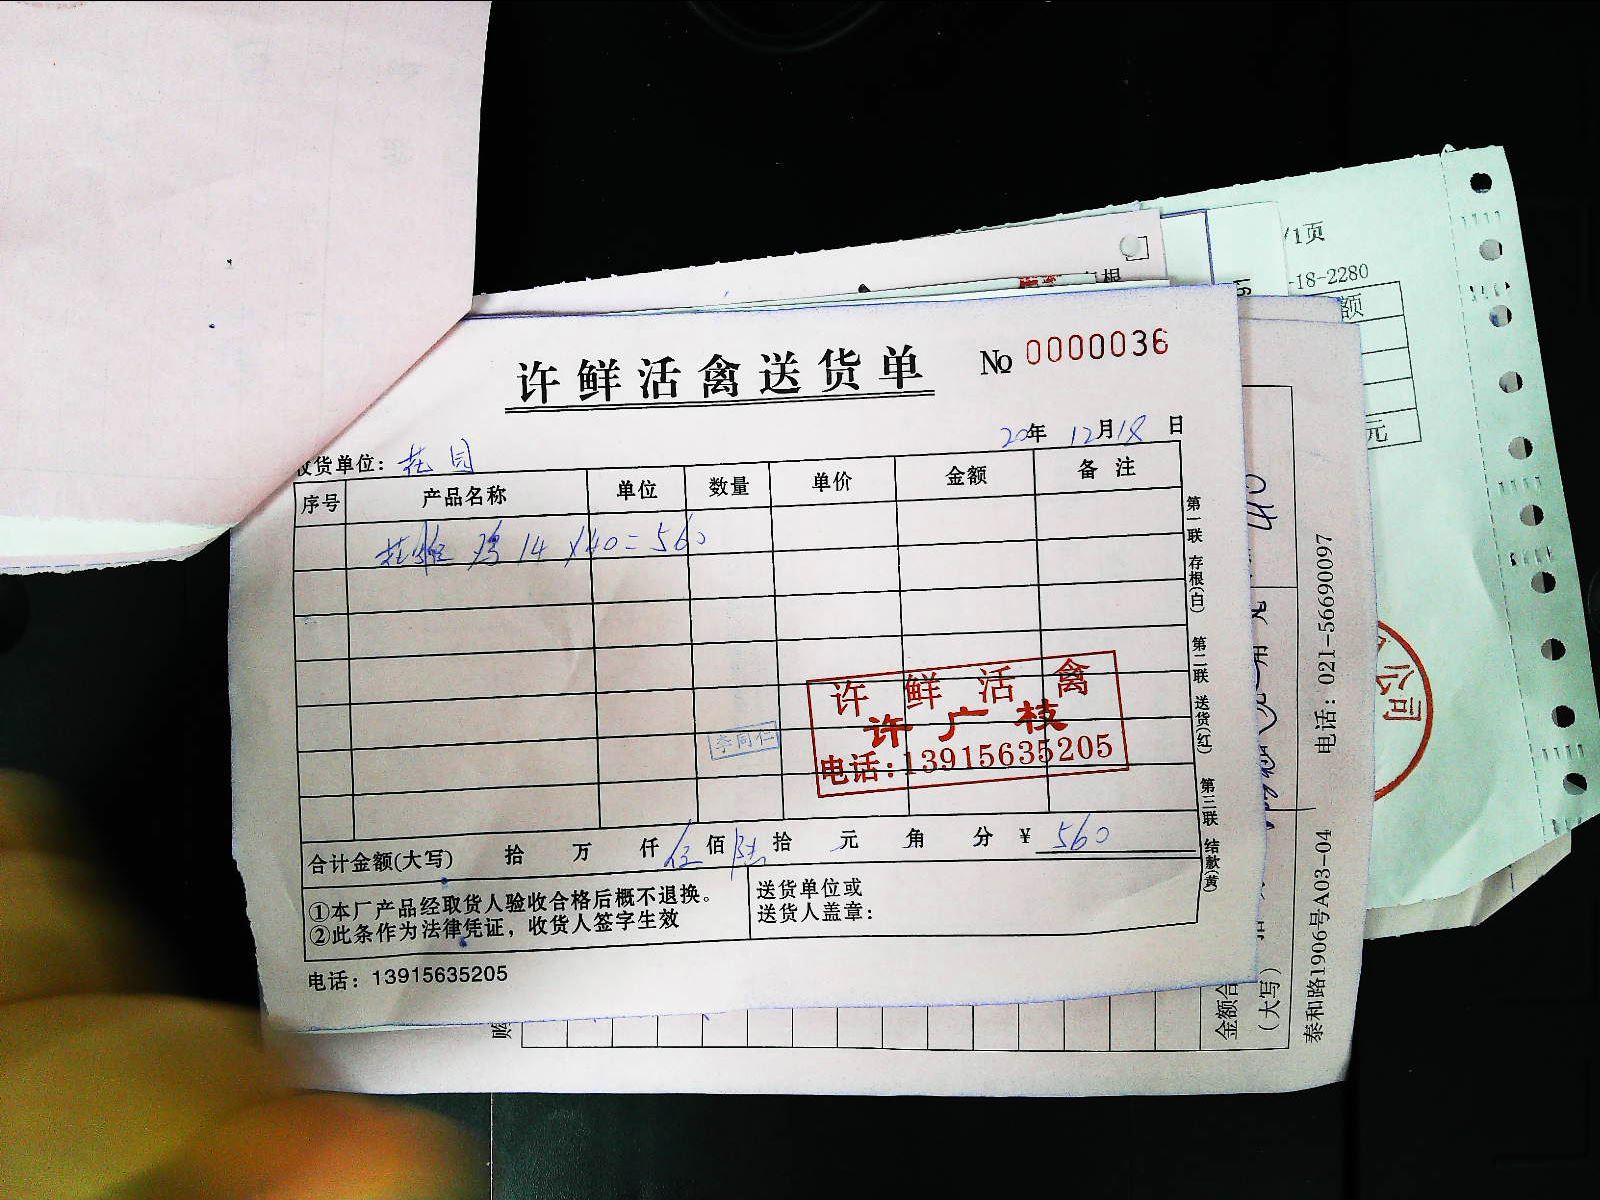 许鲜活禽送货单
№ 0000036
20年 12月18日
收货单位：花园
序号 产品名称 单位 数量 单价 金额 备注
鸡 14 ×40=560
许鲜活禽
许广枝
电话:13915635205
李同仁
合计金额(大写) 拾 万 仟 伍佰 陆拾 元 角 分 ¥ 560
①本厂产品经取货人验收合格后概不退换。
②此条作为法律凭证，收货人签字生效
送货单位或
送货人盖章：
电话：13915635205
第一联 存根(白) 第二联 送货(红) 第三联 结款(黄)
/1页
-18-2280
额
元
存根
40
公司
电话：021-56690097
泰和路1906号A03-04
金额合
(大写)